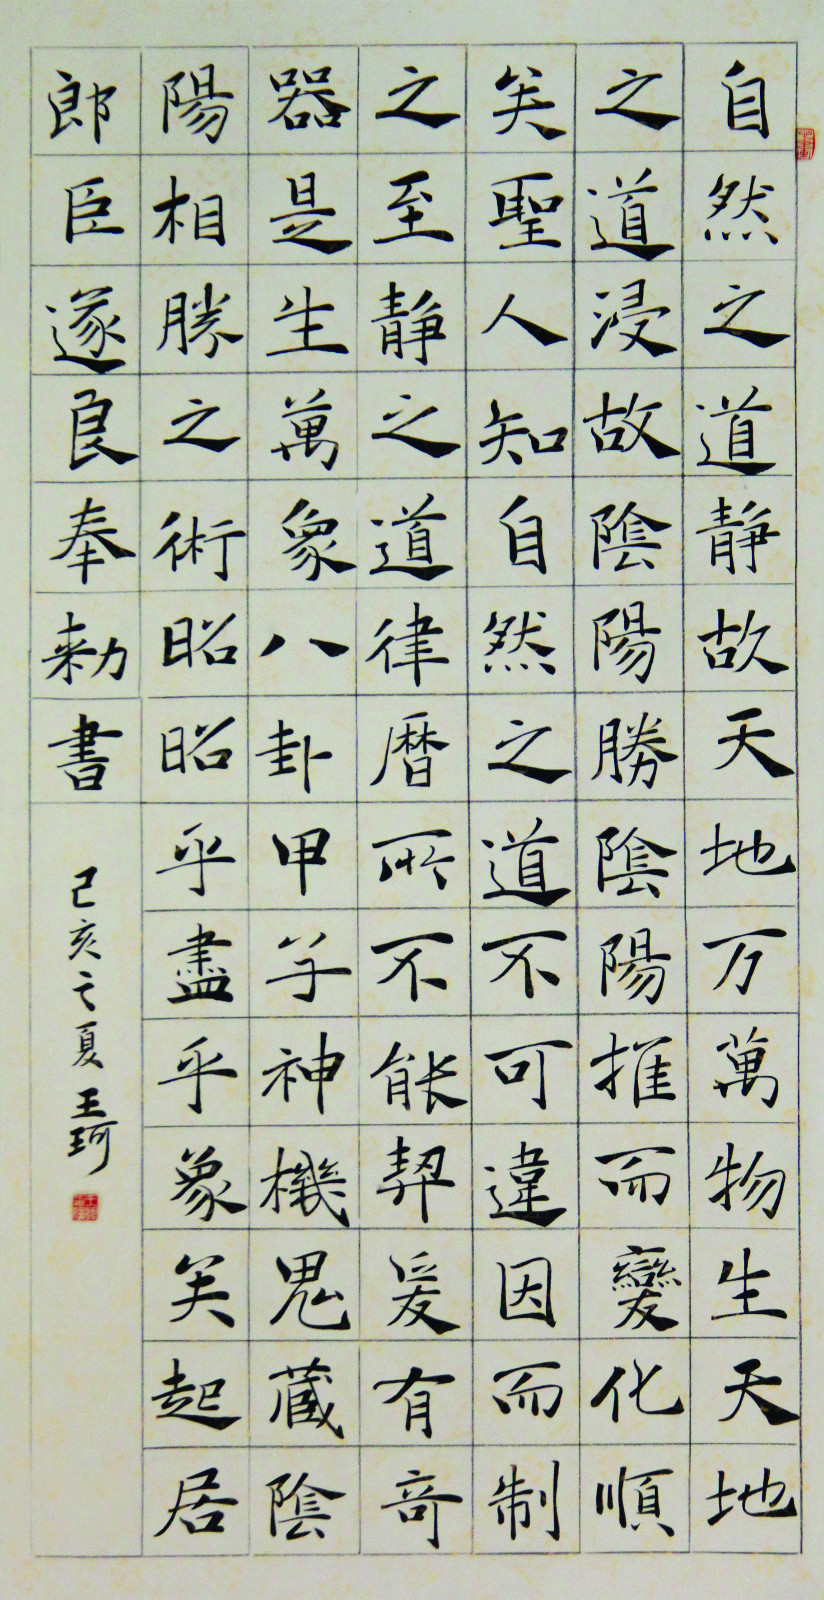 自然之道静故天地万萬物生天地
之道浸故陰陽勝陰陽推而變化順
矣聖人知自然之道不可違因而制
之至静之道律曆所不能契爰有奇
器是生萬象八卦甲子神機鬼藏陰
陽相勝之術昭昭乎盡乎象矣起居
郎臣遂良奉勅書
己亥之夏 王珂